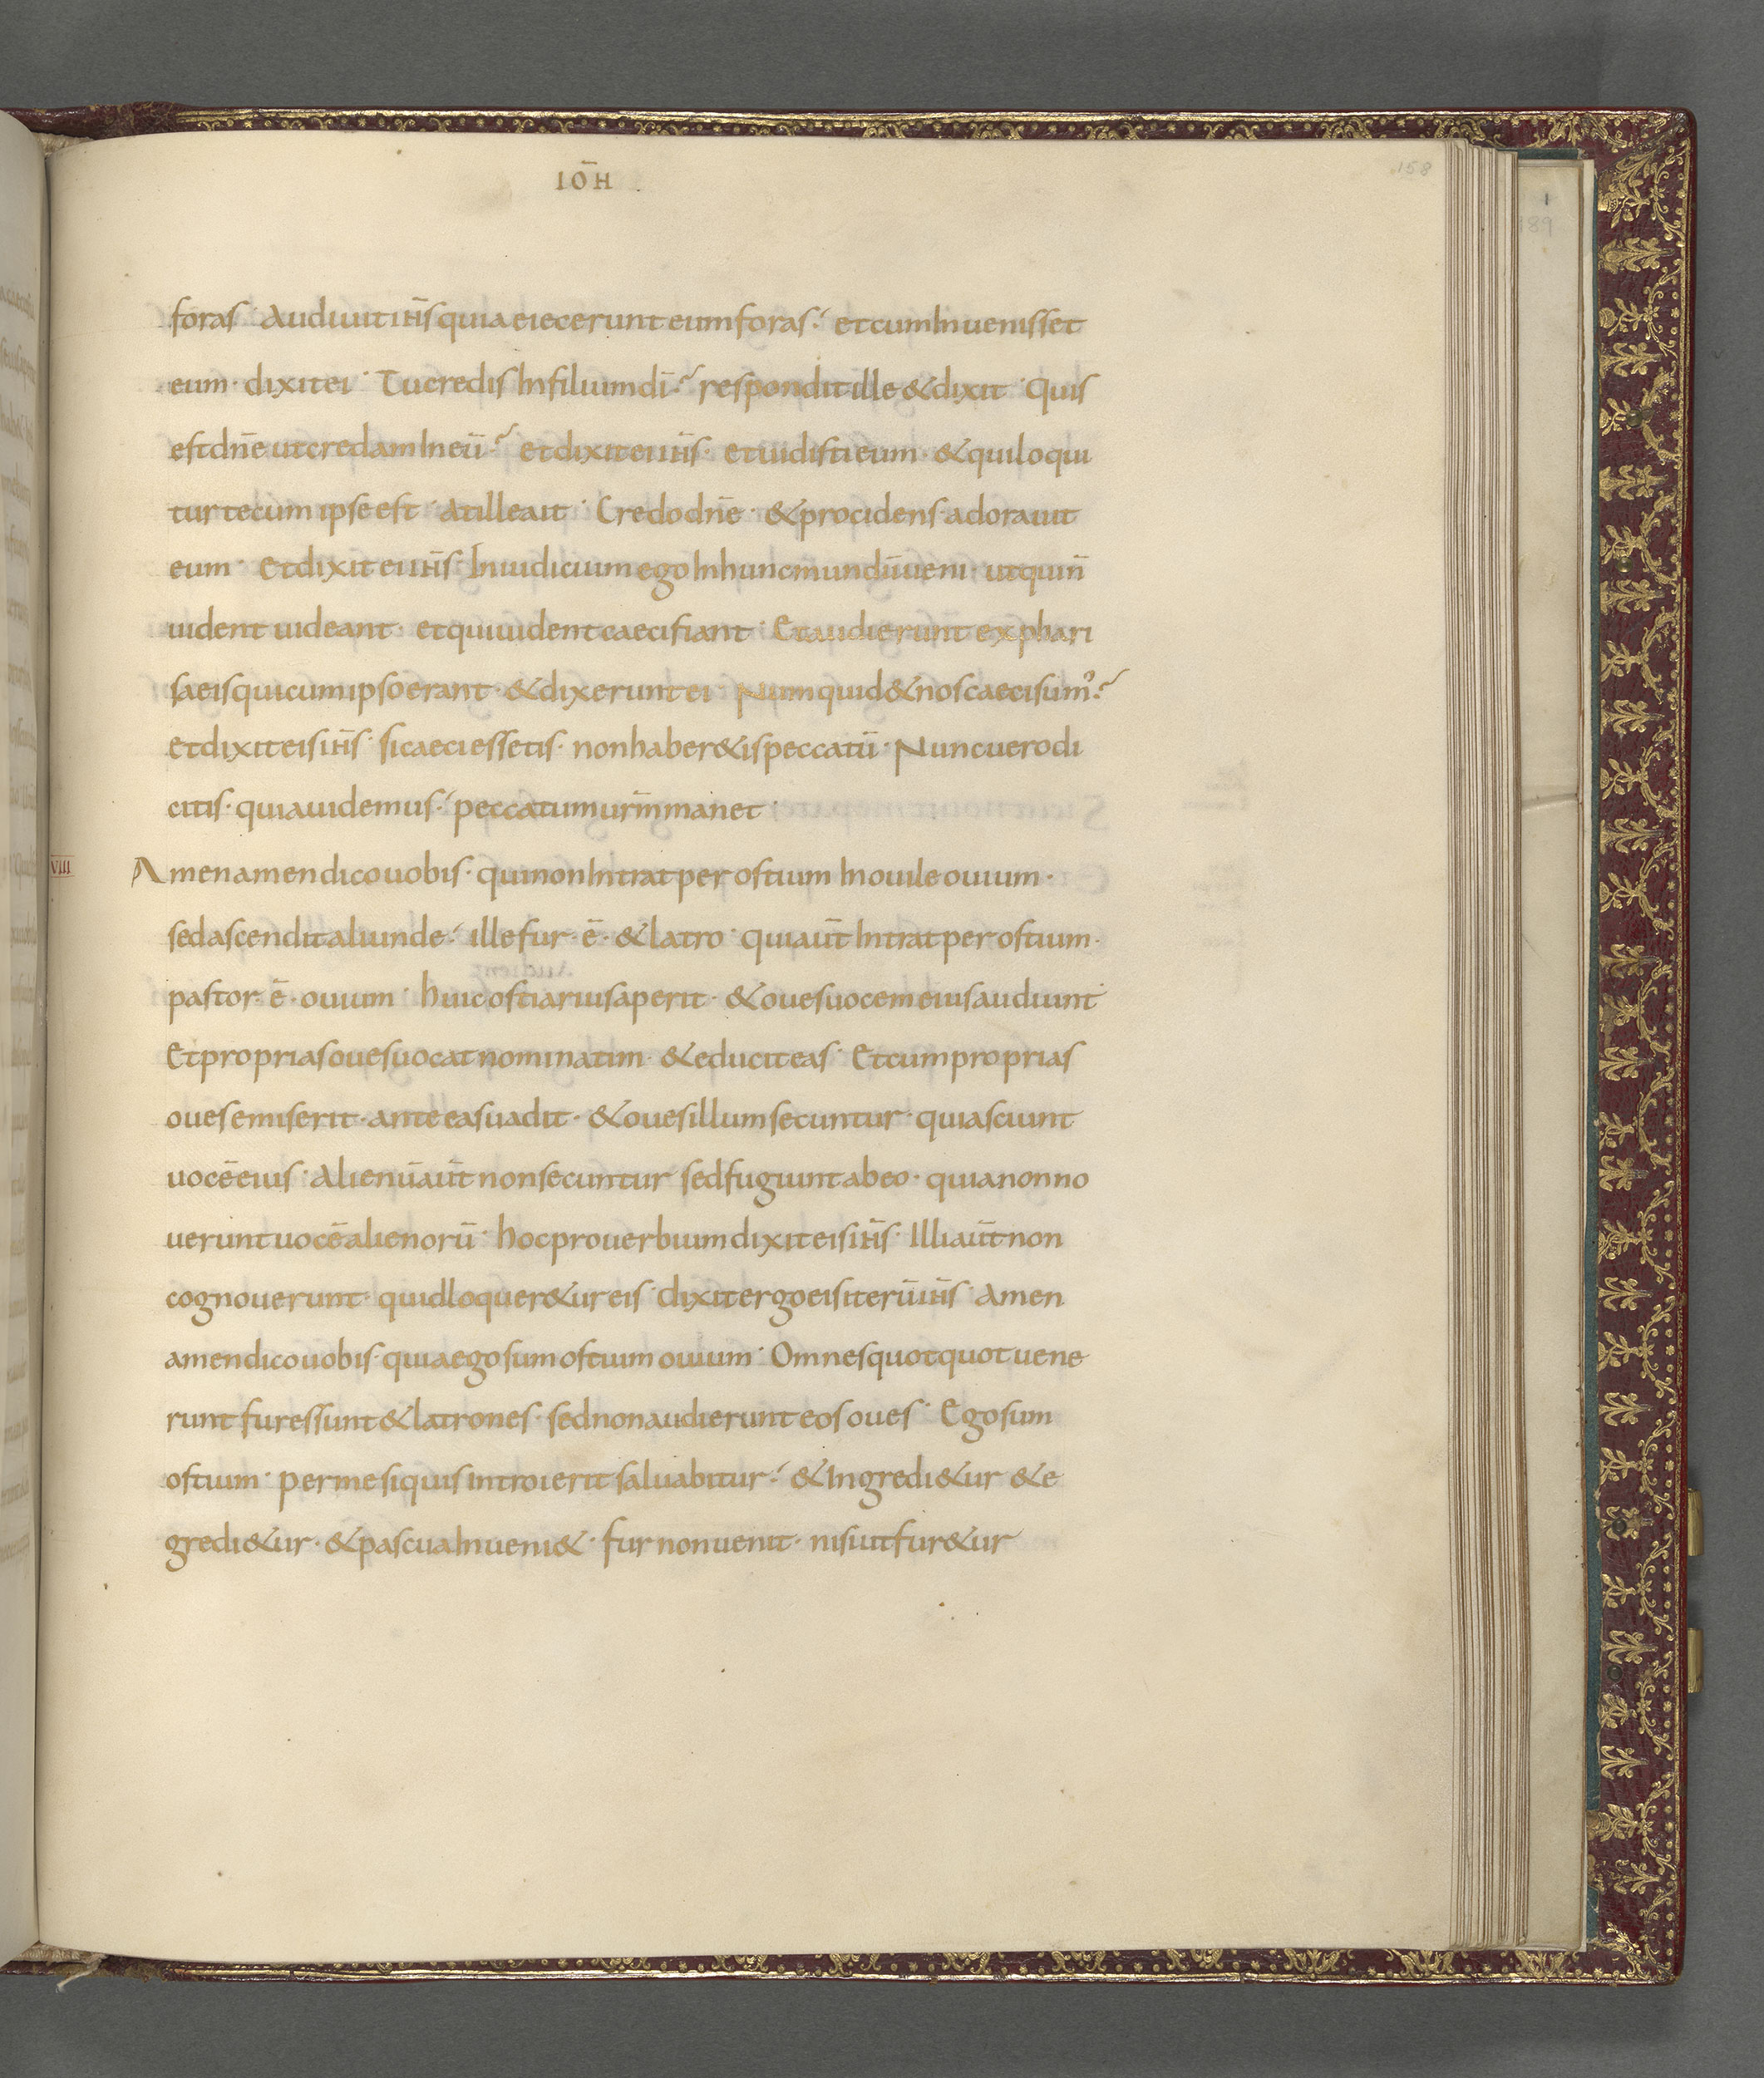 IŌH
158
foras · Audiuit ihs̄ quia eiecerunt eum foras · et cum Inuenisset
eum · dixit ei · Tu credis In filium dī? respondit ille & dixit · Quis
est dn̄e ut credam In eū? Et dixit ei ihs̄ · et uidisti eum · & qui loqui
tur tecum ipse est · At ille ait · Credo dn̄e · & procidens adorauit
eum · Et dixit ei ihs̄ · In iudicium ego In hunc mundū ueni · ut qui n̄
uident uideant · et qui uident caeci fiant · Et audierunt ex phari
saeis qui cum ipso erant · & dixerunt ei · Numquid & nos caeci sumꝰ?
Et dixit eis ihs̄ · si caeci essetis · non haber&is peccatū · Nunc uero di
citis · quia uidemus · peccatum urm̄ manet ·
VIII
Amen amen dico uobis · qui non Intrat per ostium In ouile ouium ·
sed ascendit aliunde · ille fur · ē · & latro · qui aūt Intrat per ostium ·
pastor · ē · ouium · huic ostiarius aperit · & oues uocem eius audiunt ·
Et proprias oues uocat nominatim · & educit eas · Et cum proprias
oues emiserit · ante eas uadit · & oues illum secuntur · quia sciunt
uocē eius · Alienū aūt non secuntur sed fugiunt ab eo · quia non no
uerunt uocē alienorū · hoc prouerbium dixit eis ihs̄ · Illi aūt non
cognouerunt · quid loquer&ur eis · dixit ergo eis iterū ihs̄ · Amen
amen dico uobis · quia ego sum ostium ouium · Omnes quotquot uene
runt fures sunt & latrones · sed non audierunt eos oues · Ego sum
ostium · per me si quis introierit saluabitur · & Ingredi&ur & e
gredi&ur · & pascua Inueni& · fur non uenit · nisi ut fur&ur
1
189